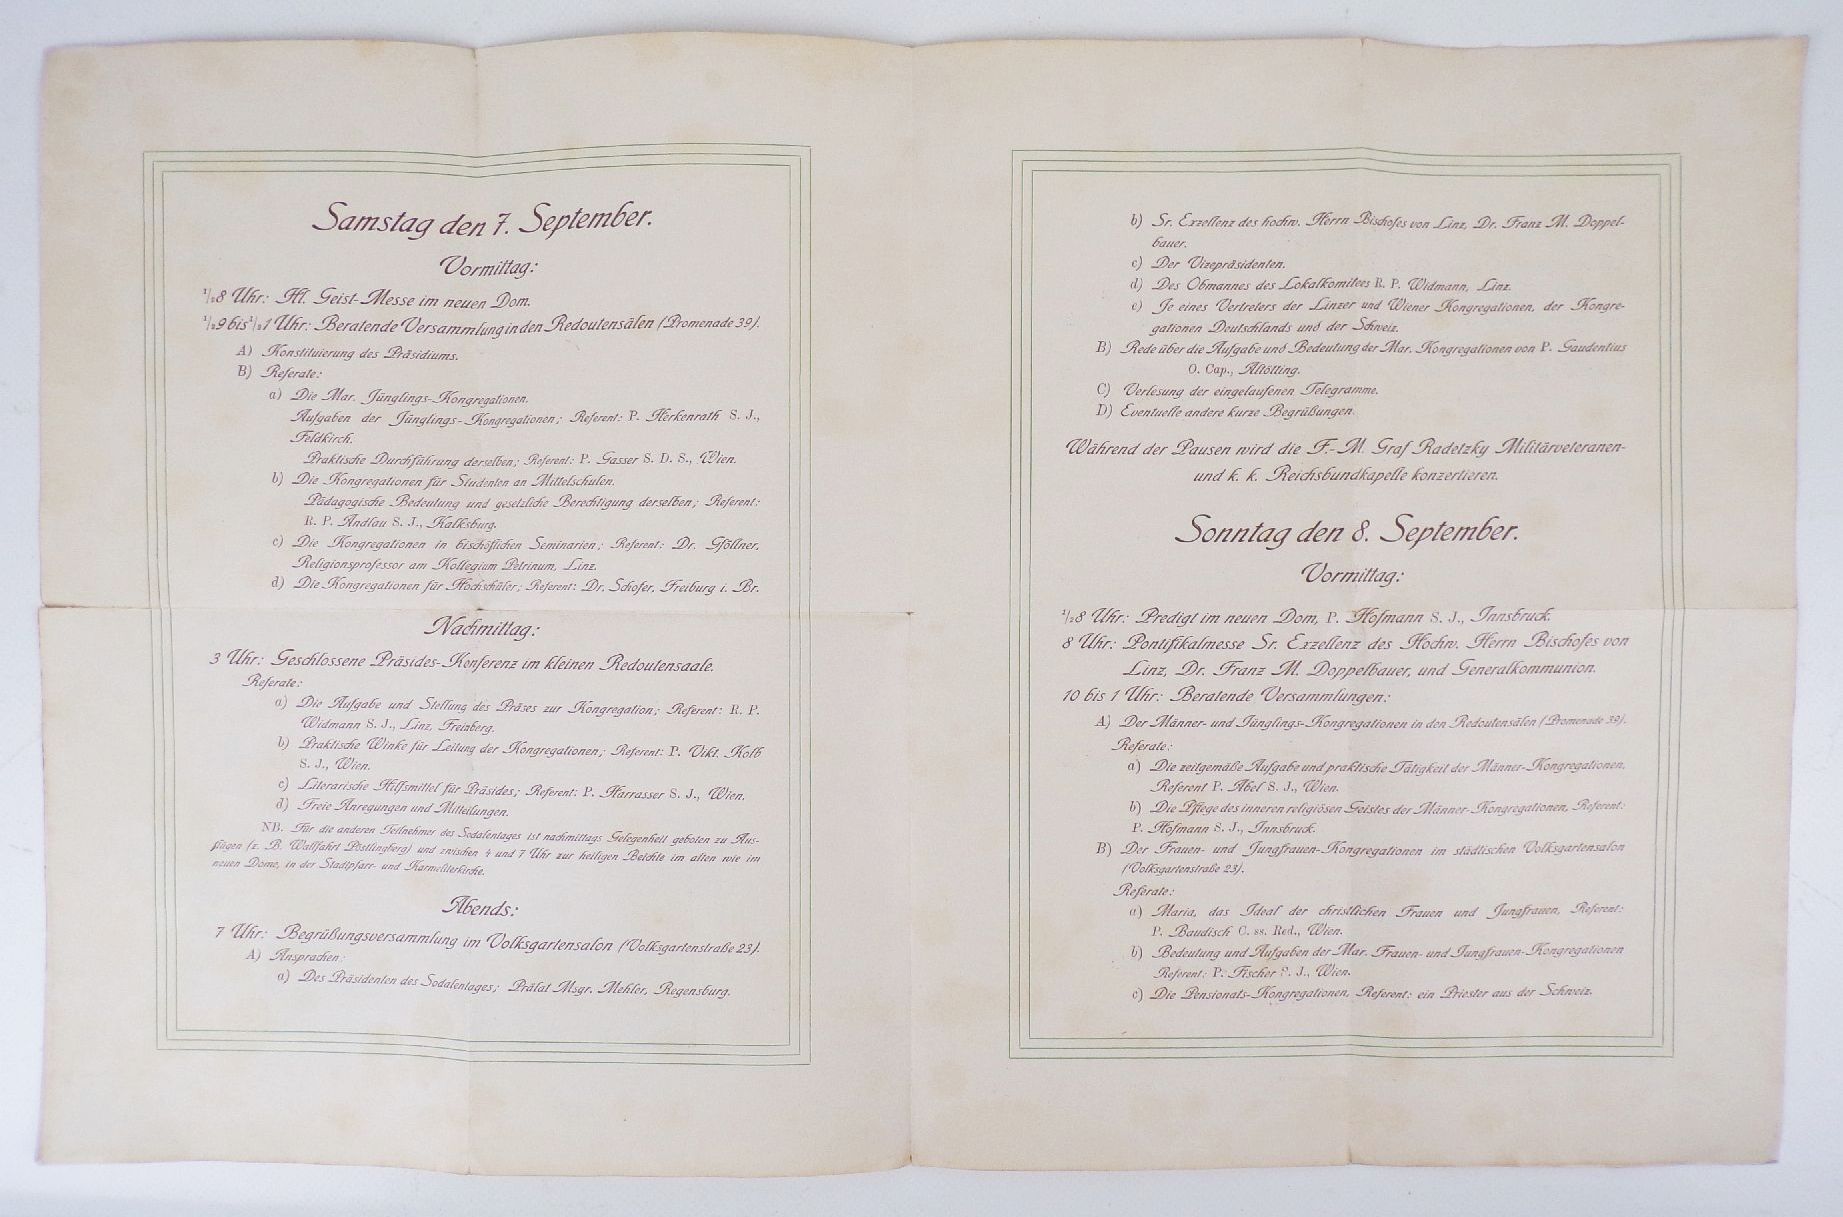 Samstag den 7. September.
Vormittag:
1/28 Uhr: Hl. Geist-Messe im neuen Dom.
1/29 bis 1/21 Uhr: Beratende Versammlung in den Redoutensälen (Promenade 39).
A) Konstituierung des Präsidiums.
B) Referate:
a) Die Mar. Jünglings-Kongregationen.
Aufgaben der Jünglings-Kongregationen; Referent: P. Herkenrath S. J.,
Feldkirch.
Praktische Durchführung derselben; Referent: P. Gasser S. D. S., Wien.
b) Die Kongregationen für Studenten an Mittelschulen.
Pädagogische Bedeutung und gesetzliche Berechtigung derselben; Referent:
R. P. Andlau S. J., Kalksburg.
c) Die Kongregationen in bischöflichen Seminarien; Referent: Dr. Gföllner,
Religionsprofessor am Kollegium Petrinum, Linz.
d) Die Kongregationen für Hochschüler; Referent: Dr. Schofer, Freiburg i. Br.
Nachmittag:
3 Uhr: Geschlossene Präsides-Konferenz im kleinen Redoutensaale.
Referate:
a) Die Aufgabe und Stellung des Präses zur Kongregation; Referent: R. P.
Widmann S. J., Linz, Freinberg.
b) Praktische Winke für Leitung der Kongregationen; Referent: P. Vikt. Kolb
S. J., Wien.
c) Literarische Hilfsmittel für Präsides; Referent: P. Harrasser S. J., Wien.
d) Freie Anregungen und Mitteilungen.
NB. Für die anderen Teilnehmer des Sodalentages ist nachmittags Gelegenheit geboten zu Aus-
flügen (z. B. Wallfahrt Pöstlingberg) und zwischen 4 und 7 Uhr zur heiligen Beichte im alten wie im
neuen Dome, in der Stadtpfarr- und Karmeliterkirche.
Abends:
7 Uhr: Begrüßungsversammlung im Volksgartensalon (Volksgartenstraße 23).
A) Ansprachen:
a) Des Präsidenten des Sodalentages; Prälat Msgr. Mehler, Regensburg.
b) Sr. Exzellenz des hochw. Herrn Bischofes von Linz, Dr. Franz M. Doppel-
bauer.
c) Der Vizepräsidenten.
d) Des Obmannes des Lokalkomitees R. P. Widmann, Linz.
e) Je eines Vertreters der Linzer und Wiener Kongregationen, der Kongre-
gationen Deutschlands und der Schweiz.
B) Rede über die Aufgabe und Bedeutung der Mar. Kongregationen von P. Gaudentius
O. Cap., Altötting.
C) Verlesung der eingelaufenen Telegramme.
D) Eventuelle andere kurze Begrüßungen.
Während der Pausen wird die F.-M. Graf Radetzky Militärveteranen-
und k. k. Reichsbundkapelle konzertieren.
Sonntag den 8. September.
Vormittag:
1/28 Uhr: Predigt im neuen Dom, P. Hofmann S. J., Innsbruck.
8 Uhr: Pontifikalmesse Sr. Exzellenz des Hochw. Herrn Bischofes von
Linz, Dr. Franz M. Doppelbauer, und Generalkommunion.
10 bis 1 Uhr: Beratende Versammlungen:
A) Der Männer- und Jünglings-Kongregationen in den Redoutensälen (Promenade 39).
Referate:
a) Die zeitgemäße Aufgabe und praktische Tätigkeit der Männer-Kongregationen,
Referent P. Abel S. J., Wien.
b) Die Pflege des inneren religiösen Geistes der Männer-Kongregationen, Referent:
P. Hofmann S. J., Innsbruck.
B) Der Frauen- und Jungfrauen-Kongregationen im städtischen Volksgartensalon
(Volksgartenstraße 23).
Referate:
a) Maria, das Ideal der christlichen Frauen und Jungfrauen, Referent:
P. Baudisch C. ss. Red., Wien.
b) Bedeutung und Aufgaben der Mar. Frauen- und Jungfrauen-Kongregationen
Referent: P. Fischer S. J., Wien.
c) Die Pensionats-Kongregationen, Referent: ein Priester aus der Schweiz.